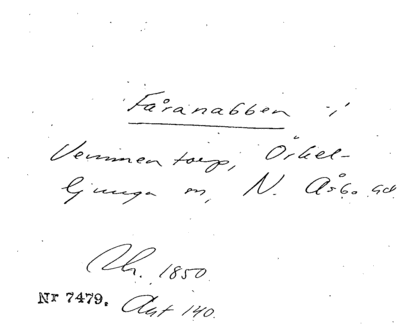 Fåranabben i
Vemmentorp, Örkel-
ljunga sn, N. Åsbo hd
Uh. 1850
Nr 7479. Akt 140.